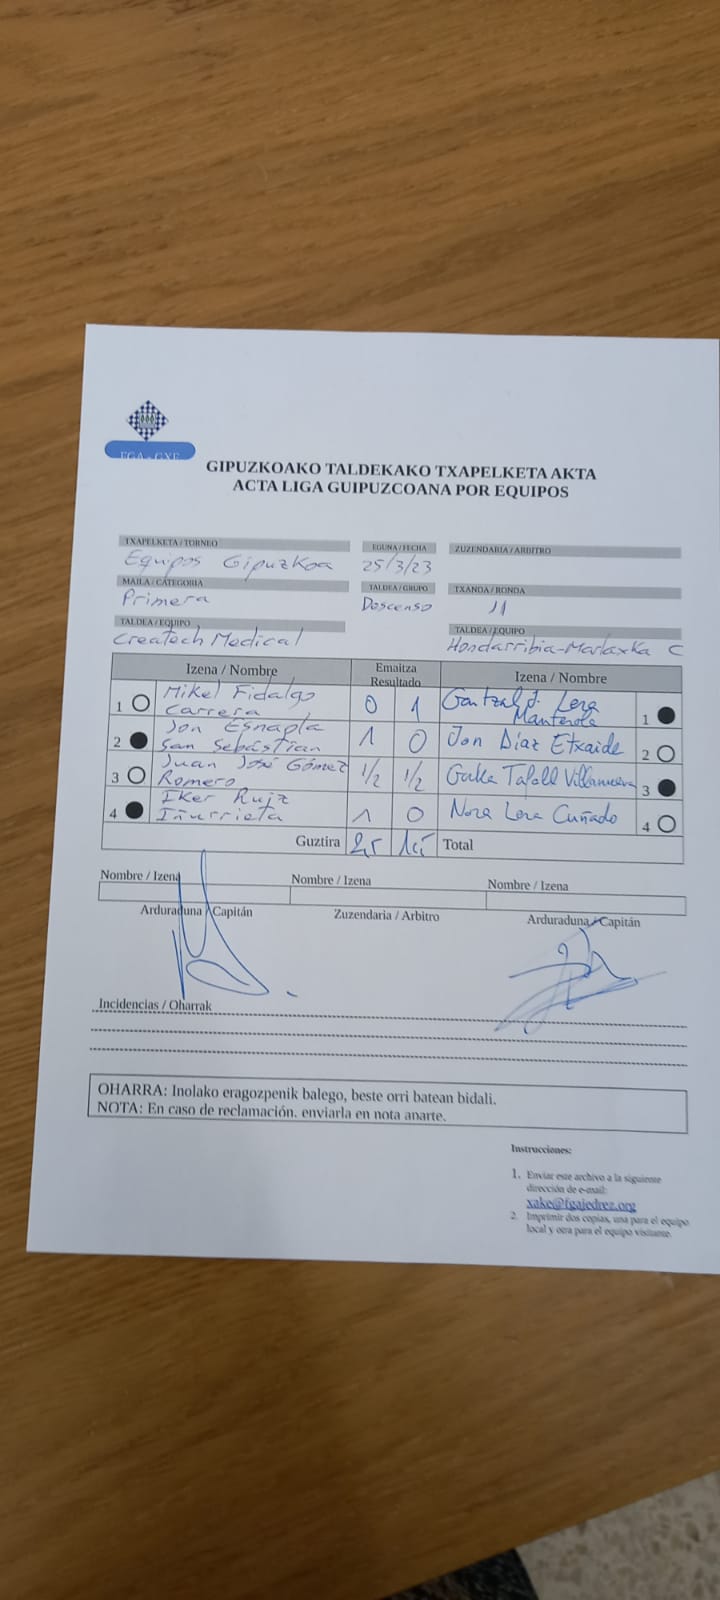 FGA - GXF
GIPUZKOAKO TALDEKAKO TXAPELKETA AKTA
ACTA LIGA GUIPUZCOANA POR EQUIPOS
TXAPELKETA / TORNEO EGUNA / FECHA ZUZENDARIA / ARBITRO
Equipos Gipuzkoa 25/3/23
MAILA / CATEGORIA TALDEA / GRUPO TXANDA / RONDA
Primera Descenso 11
TALDEA / EQUIPO TALDEA / EQUIPO
Createch Medical Hondarribia-Marlaxka C
Izena / Nombre Emaitza Resultado Izena / Nombre
1 Mikel Fidalgo Carrera 0 1 Gontzal J. Lera Manterola 1
2 Jon Esnaola San Sebástian 1 0 Jon Díaz Etxaide 2
3 Juan José Gómez Romero 1/2 1/2 Tafall Villanueva 3
4 Iker Ruiz Iñurrieta 1 0 Nora Lera Cuñado 4
Guztira 2,5 1,5 Total
Nombre / Izena Nombre / Izena Nombre / Izena
Arduraduna / Capitán Zuzendaria / Arbitro Arduraduna / Capitán
Incidencias / Oharrak
OHARRA: Inolako eragozpenik balego, beste orri batean bidali.
NOTA: En caso de reclamación, enviarla en nota aparte.
Instrucciones:
1. Enviar este archivo a la siguiente
dirección de e-mail:
xake@fgajedrez.org
2. Imprimir dos copias, una para el equipo
local y otra para el equipo visitante.